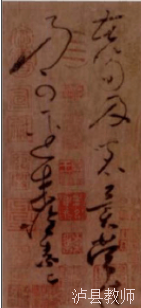 苦筍及茗異常
乃可逕來懷素上
泸县教师